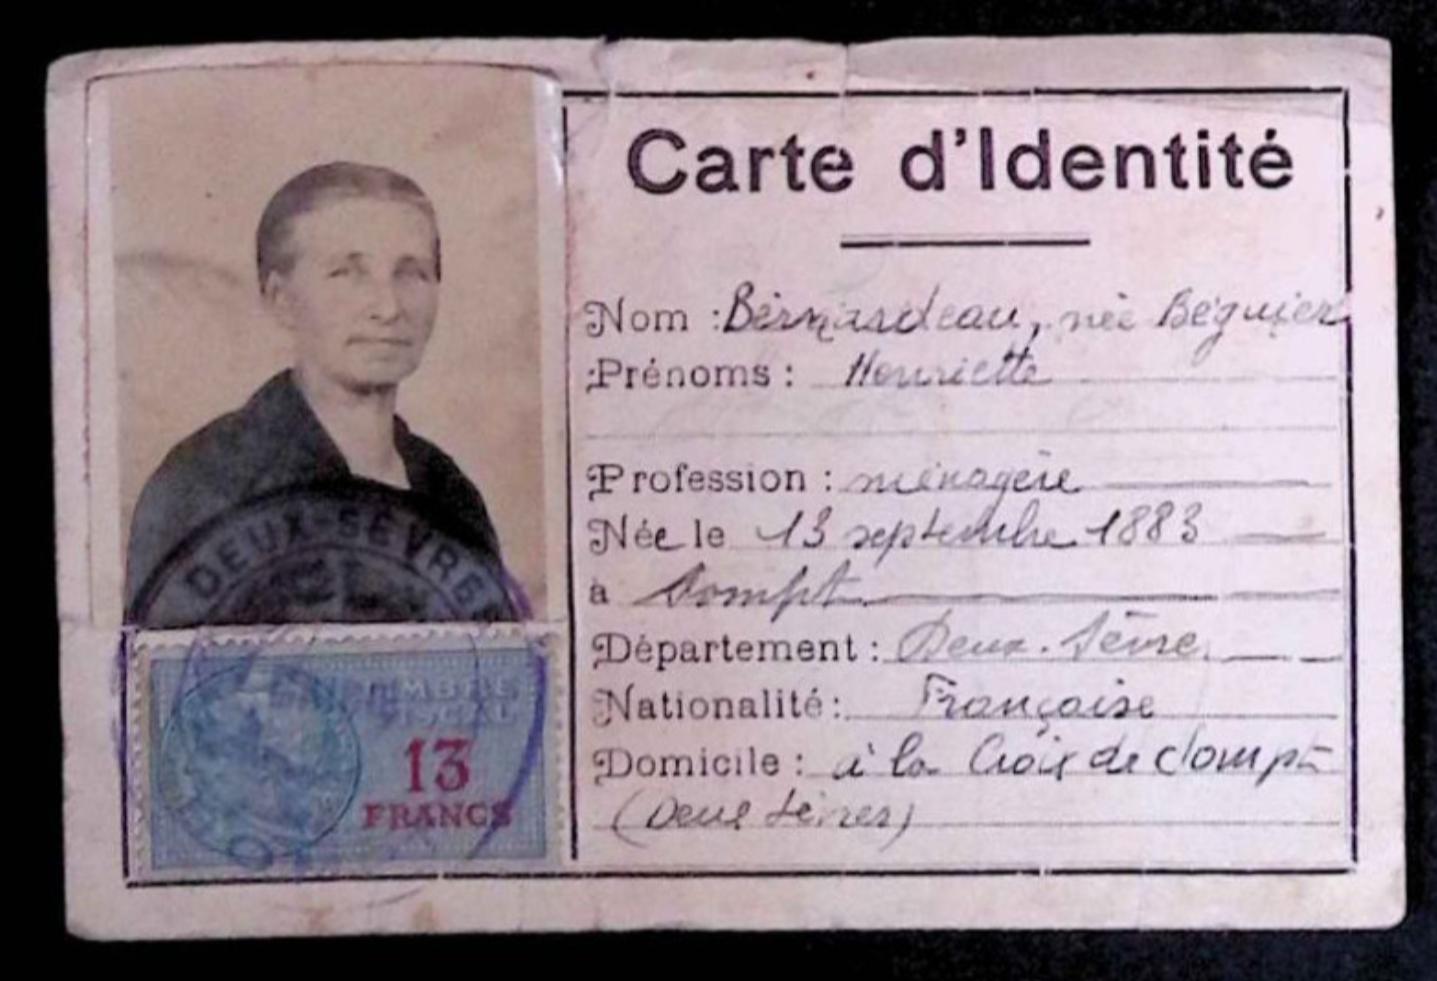 DEUX-SÈVRES
TIMBRE
FISCAL
13
FRANCS
Carte d'Identité
Nom : Bernardeau, née Béguier
Prénoms : Henriette
Profession : ménagère
Née le 13 septembre 1883
à Sompt
Département : Deux-Sèvre
Nationalité : Française
Domicile : à la Croix de Sompt
(Deux Sèvres)